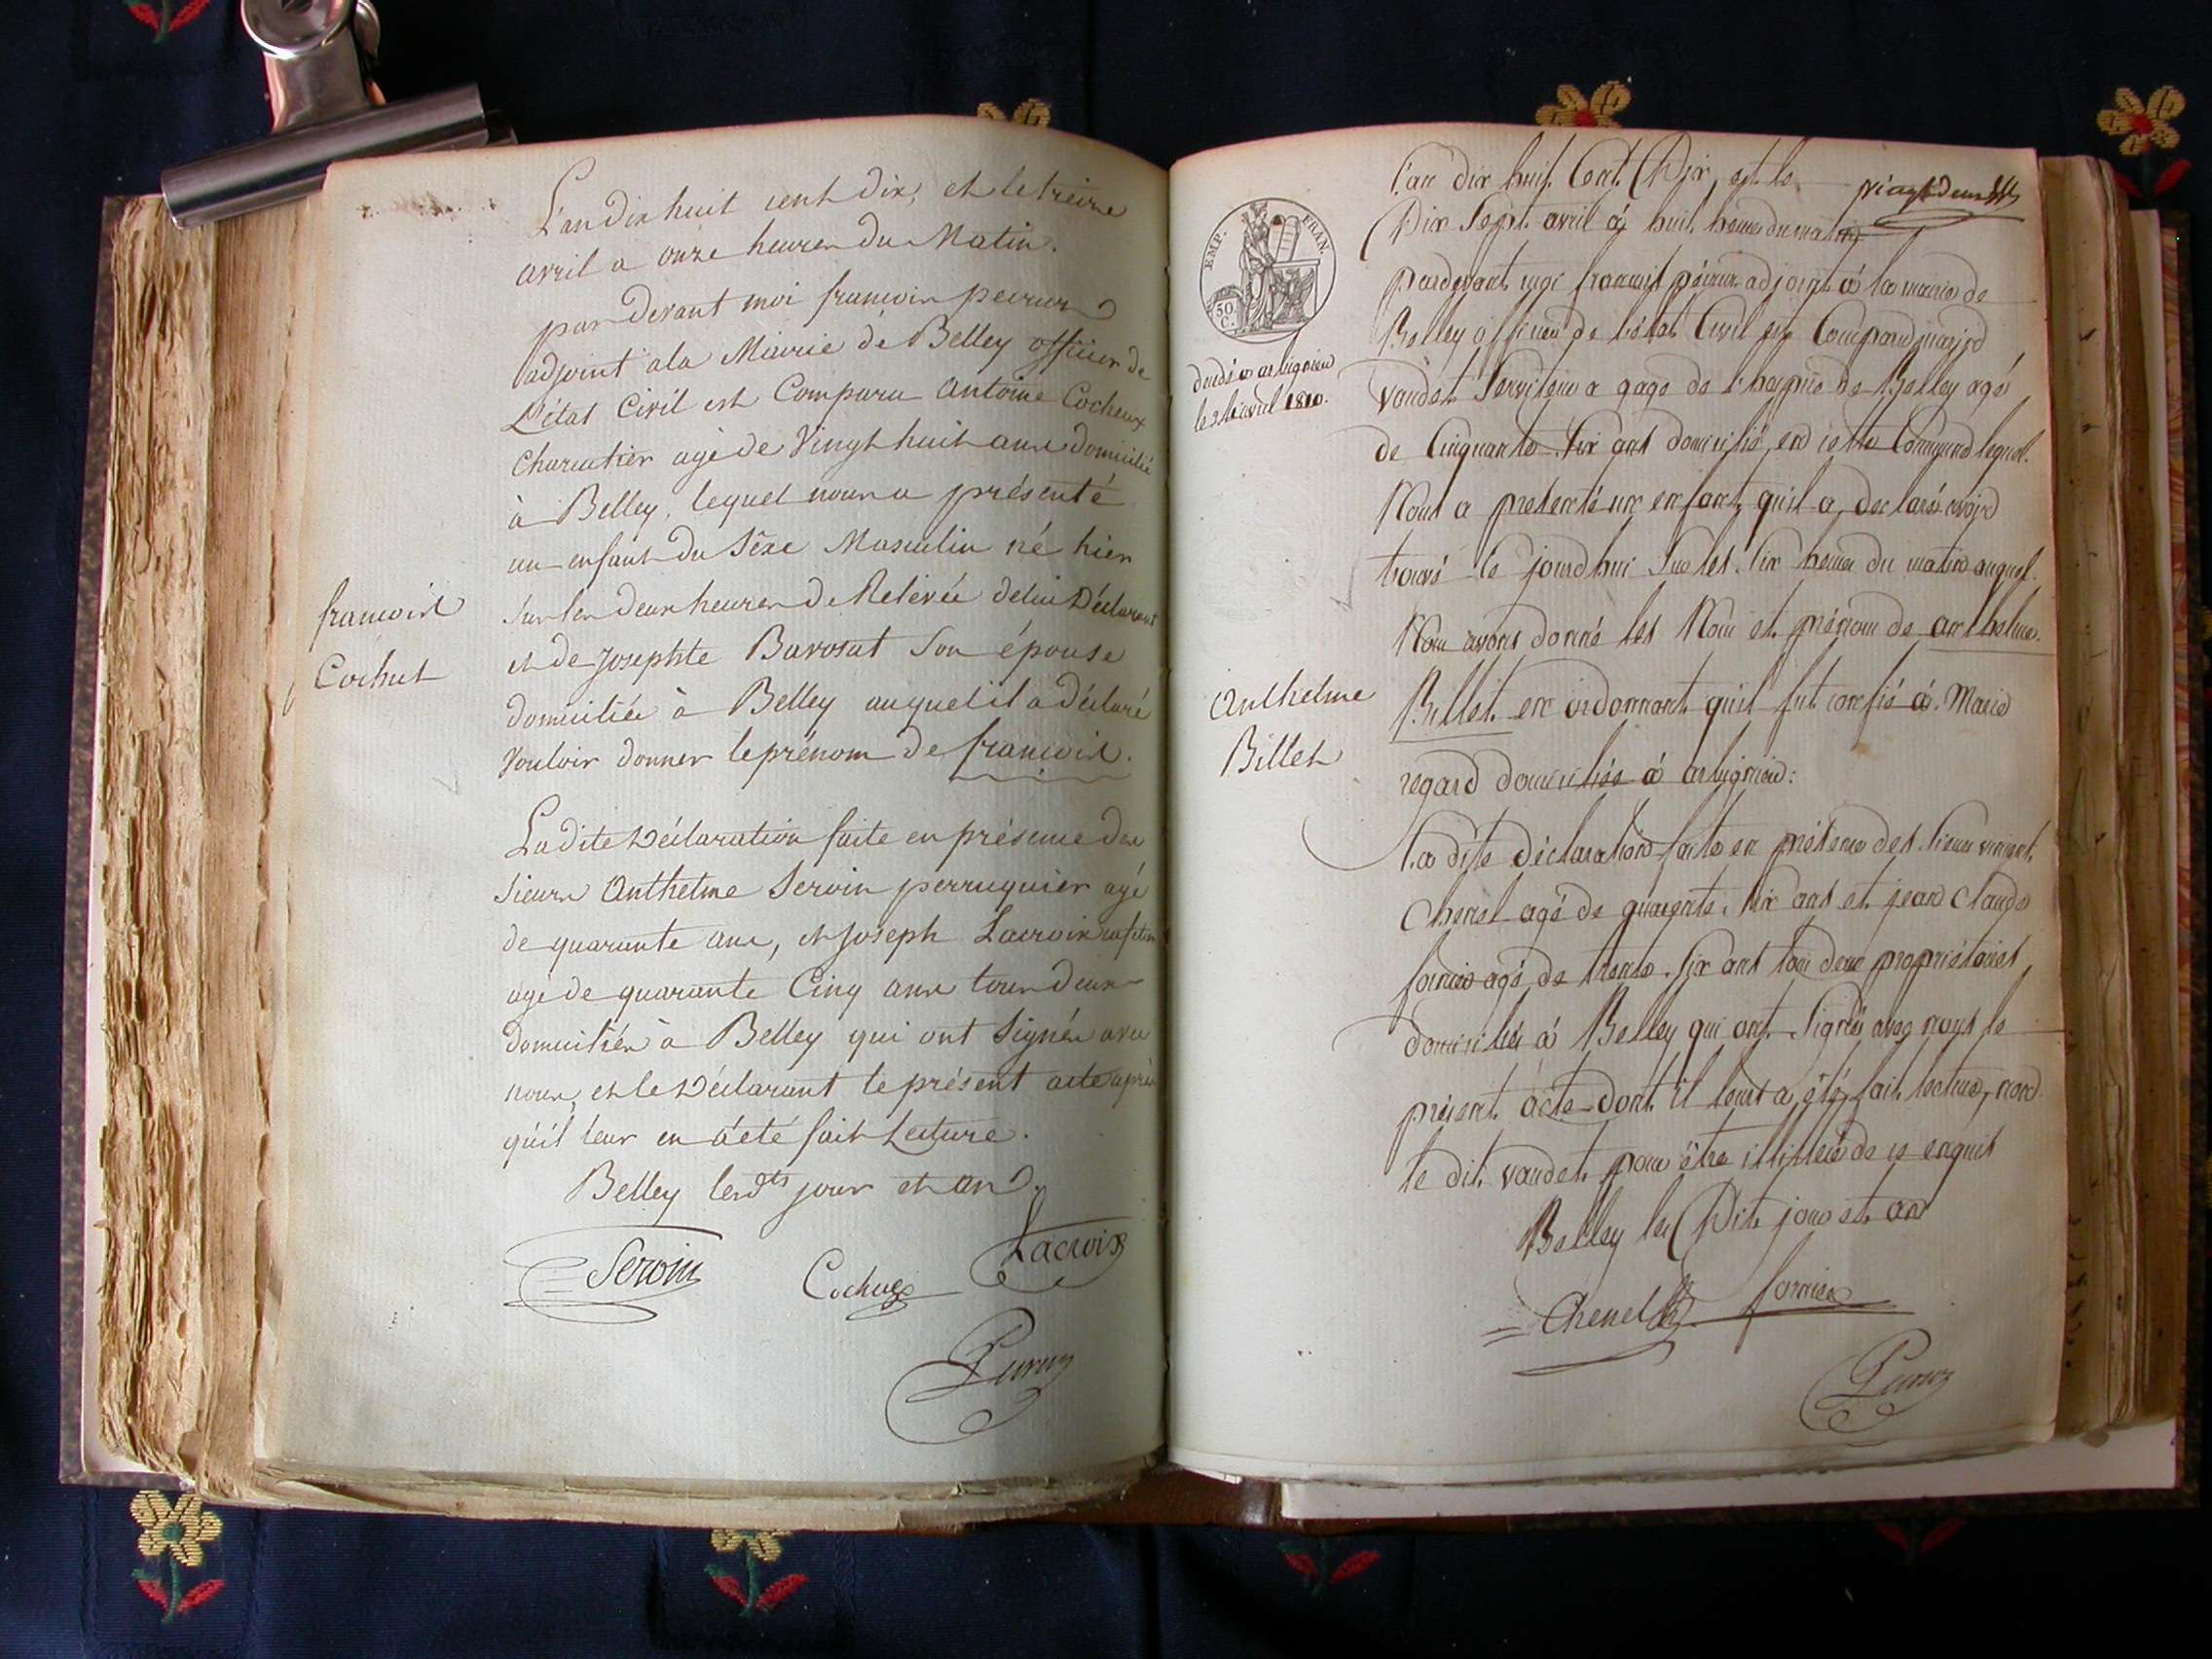 L'an dix huit cent dix, et le treize
avril a onze heures du Matin.
par devant moi francois peirus
adjoint a la Mairie de Belley officier de
L'état Civil est Comparu antoine Cocheux
Charcutier agé de Vingt huit ans domicilié
à Belley, lequel nous a présenté
un enfant du Sexe Masculin né hier
francois
Cochet
sur les deux heures de Relevée de lui Déclarant
et de Josephte Barosat Son épouse
domiciliée à Belley auquel il a déclaré
Vouloir donner le prénom de francois.
La dite Déclaration faite en présence des
Sieurs Anthelme Seroin perruquier agé
de quarante ans, et Joseph Lacroix
agé de quarante Cinq ans tous deux
domiciliés à Belley qui ont Signés avec
nous, et le Déclarant le présent acte après
qu'il leur en a été fait Lecture.
Belley lesdts jour et an.
Seroin Cochux Lacroix
vingt deux
EMP. FRAN.
50 C.
L'an dix huit Cent Dix, et le
Dix Sept avril à huit heures du matin
pardevant moi francois adjoint à la mairie de
Belley officier de l'état Civil est Comparu
vaudet Serviteur a gage de l'hospice de Belley agé
décédé a arbignieu
le avril 1810.
de Cinquante Six ans domicilié en cette Commune lequel
Nous a présenté un enfant qu'il a declaré avoir
trouvé ce jourdhui Sur les Six heures du matin auquel
Nous avons donné les Nom et prénom de anthelme
Anthelme
Billet
Billet en ordonnant qu'il fut confié à Marie
regard domiciliée à arbignieu:
La dite déclaration faite en présence des Sieurs vincent
Chenel agé de quarante Six ans et jean Claude
fornier agé de trente Six ans tous deux propriétaires
domiciliés à Belley qui ont Signés avec nous le
présent acte dont il leurs a été fait lecture, non
le dit vaudet pour être illitteré de ce enquis
Belley les Dits jour et an
Chenel fornier